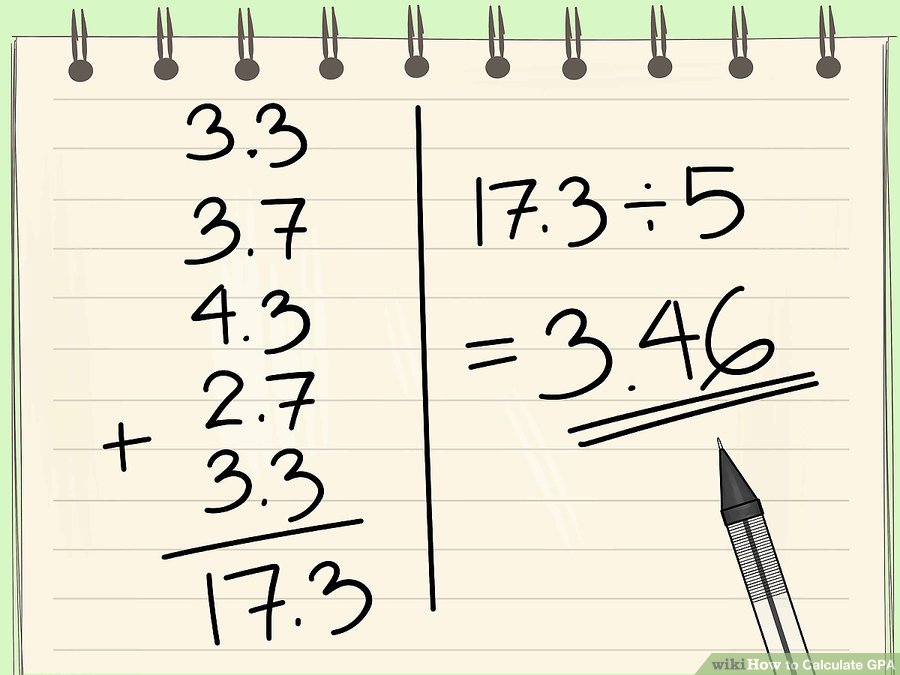 3.3
3.7
4.3
2.7
+
3.3
17.3
17.3 ÷ 5
= 3.46
wikiHow to Calculate GPA